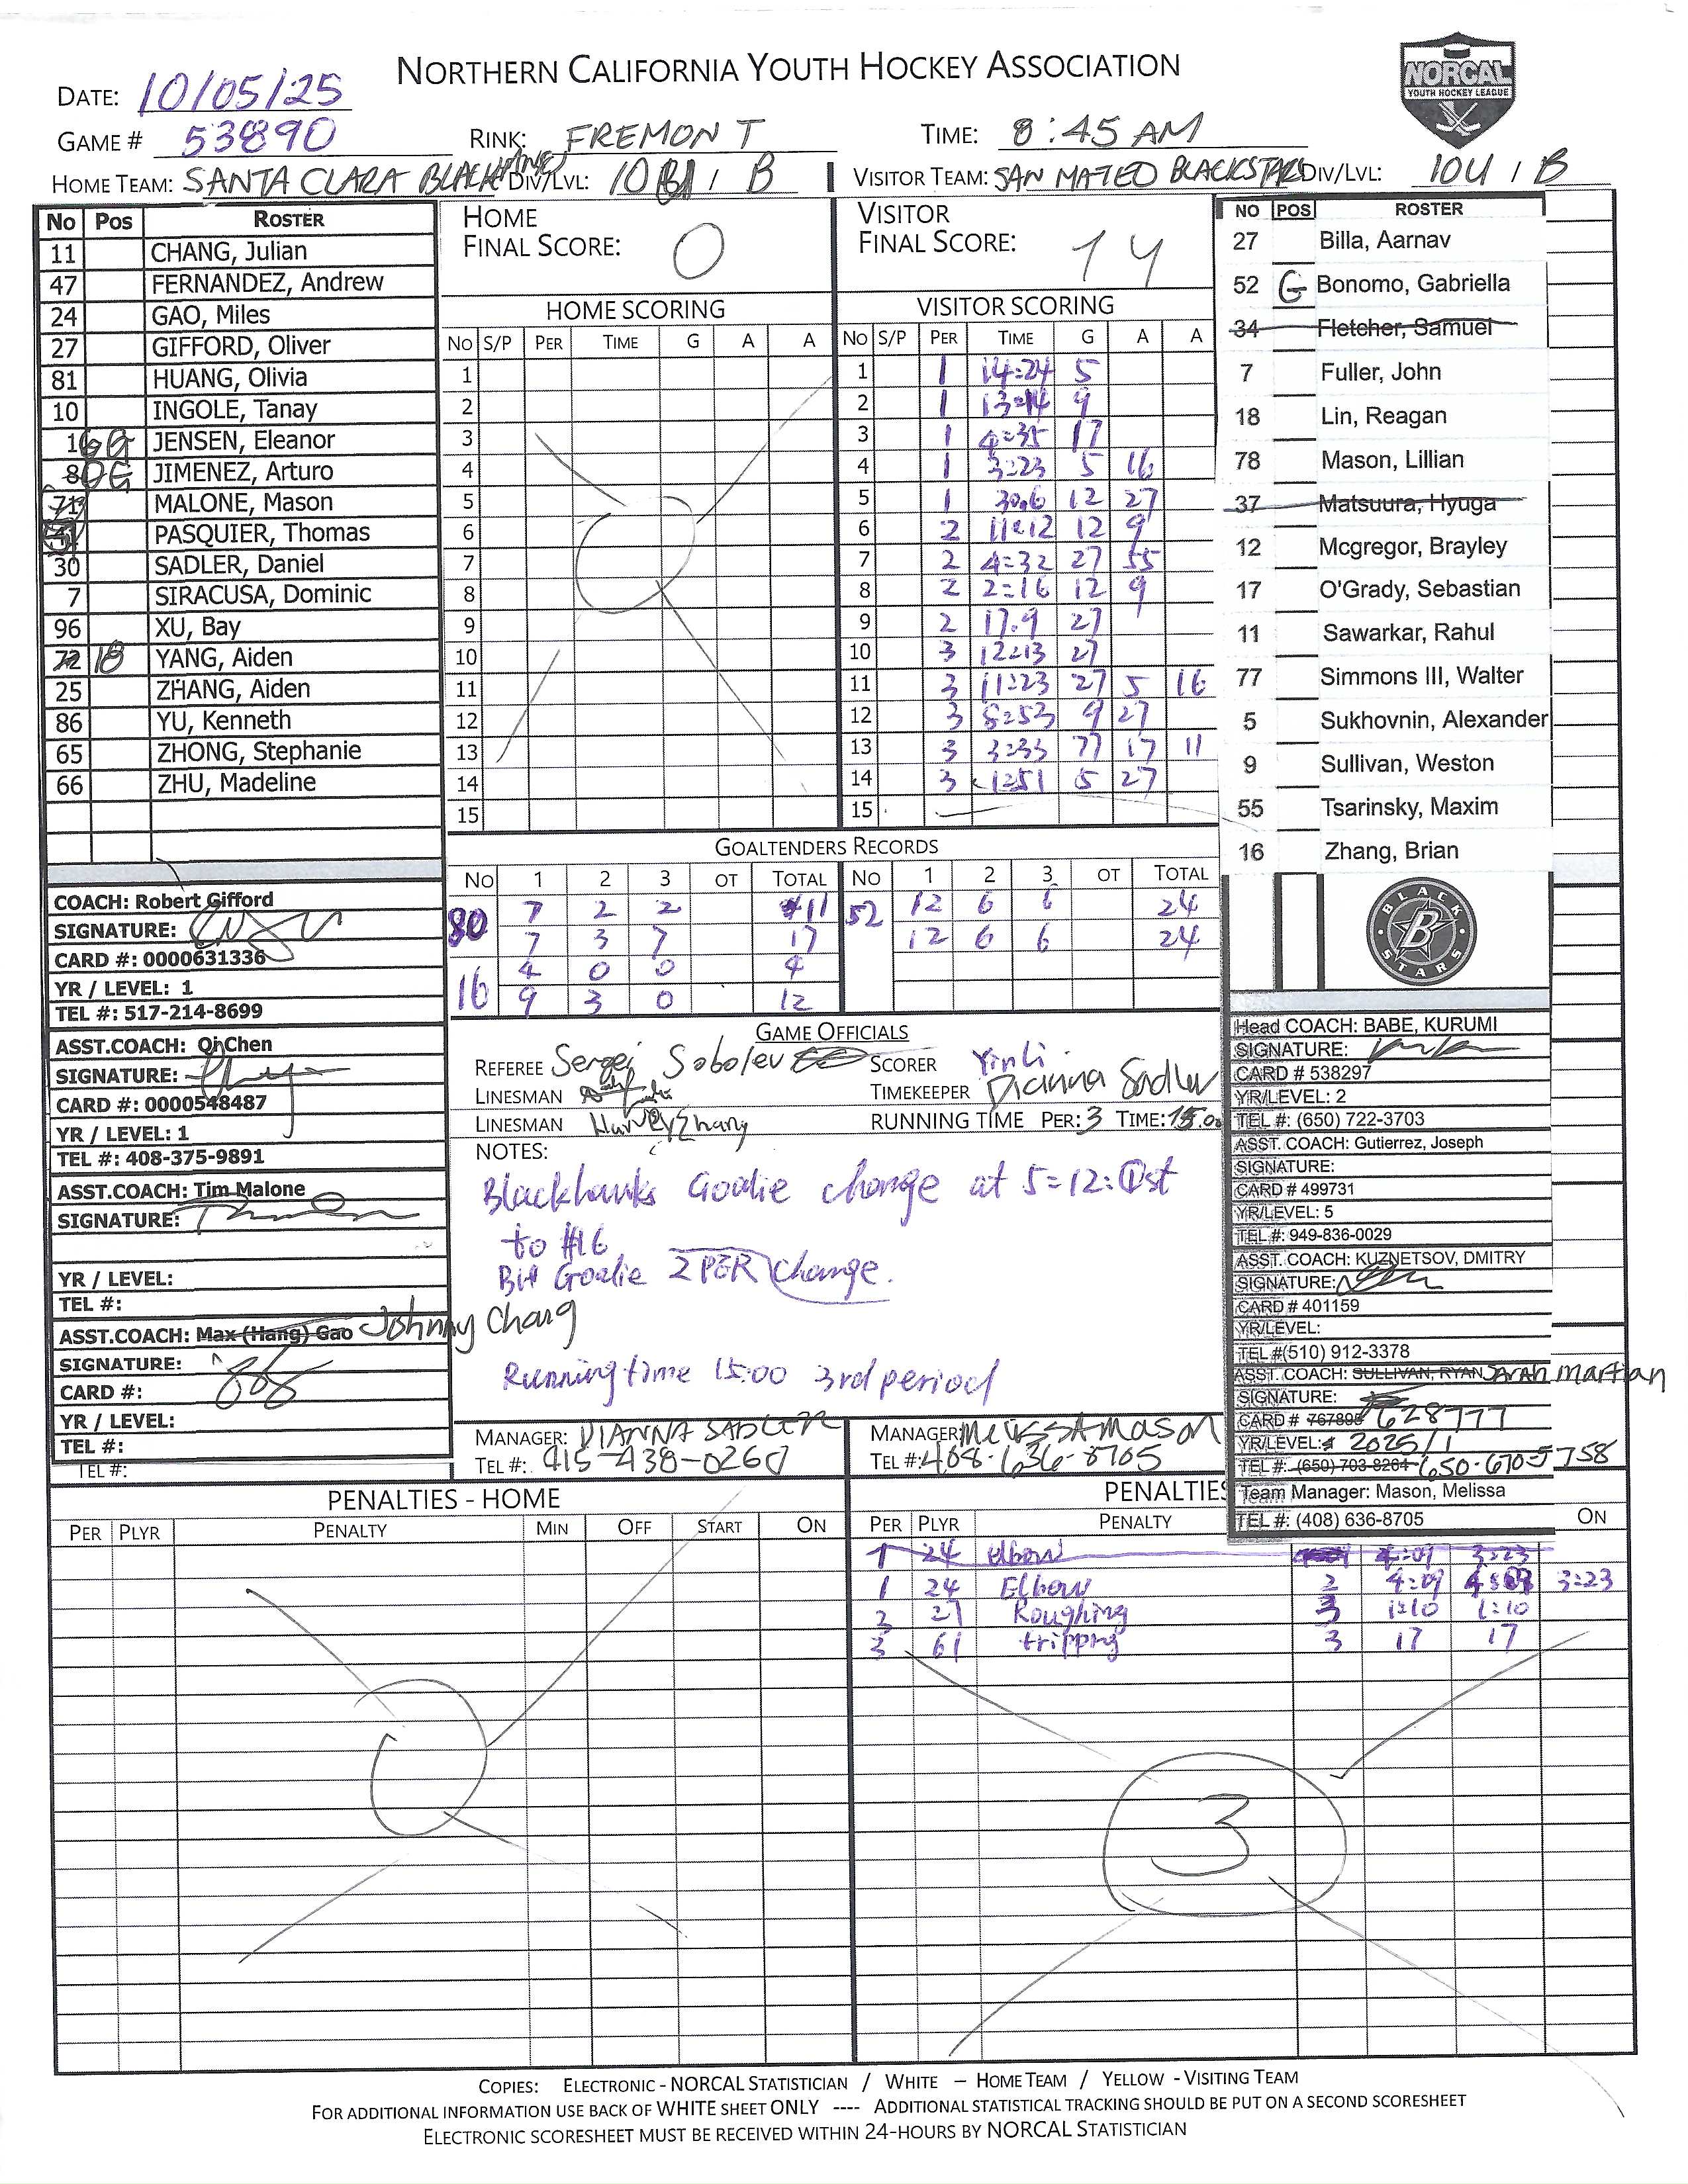 NORTHERN CALIFORNIA YOUTH HOCKEY ASSOCIATION
NORCAL
YOUTH HOCKEY LEAGUE
DATE: 10/05/25
GAME # 53890 RINK: FREMONT TIME: 8:45 AM
HOME TEAM: SANTA CLARA BLACKHAWKS DIV/LVL: 10U / B
VISITOR TEAM: SAN MATEO BLACKSTARS DIV/LVL: 10U / B
No Pos ROSTER
11 CHANG, Julian
47 FERNANDEZ, Andrew
24 GAO, Miles
27 GIFFORD, Oliver
81 HUANG, Olivia
10 INGOLE, Tanay
16 G JENSEN, Eleanor
80 G JIMENEZ, Arturo
71 MALONE, Mason
PASQUIER, Thomas
30 SADLER, Daniel
7 SIRACUSA, Dominic
96 XU, Bay
72 18 YANG, Aiden
25 ZHANG, Aiden
86 YU, Kenneth
65 ZHONG, Stephanie
66 ZHU, Madeline
COACH: Robert Gifford
SIGNATURE:
CARD #: 0000631336
YR / LEVEL: 1
TEL #: 517-214-8699
ASST.COACH: Qi Chen
SIGNATURE:
CARD #: 0000548487
YR / LEVEL: 1
TEL #: 408-375-9891
ASST.COACH: Tim Malone
SIGNATURE:
YR / LEVEL:
TEL #:
ASST.COACH: Max (Hang) Gao Johnny Chang
SIGNATURE:
CARD #:
YR / LEVEL:
TEL #:
TEL #:
HOME
FINAL SCORE: 0
HOME SCORING
No S/P PER TIME G A A
1
2
3
4
5
6
7
8
9
10
11
12
13
14
15
0
VISITOR
FINAL SCORE: 14
VISITOR SCORING
No S/P PER TIME G A A
1 1 14:24 5
2 1 13:14 9
3 1 4:35 17
4 1 3:23 5 16
5 1 30.6 12 27
6 2 11:12 12 9
7 2 4:32 27 55
8 2 2:16 12 9
9 2 17.9 27
10 3 12:13 27
11 3 11:23 27 5 16
12 3 8:53 9 27
13 3 3:33 77 17 11
14 3 1:51 5 27
15
GOALTENDERS RECORDS
No 1 2 3 OT TOTAL No 1 2 3 OT TOTAL
80 7 2 2 11 52 12 6 6 24
7 3 7 17 12 6 6 24
16 4 0 0 4
9 3 0 12
GAME OFFICIALS
REFEREE Sergei Sobolev SCORER Yin Li
LINESMAN TIMEKEEPER Dianna Sadler
LINESMAN Harvey Zhang RUNNING TIME PER: 3 TIME: 15:00
NOTES:
Blackhawks Goalie change at 5:12: 1st
to #16
BH Goalie 2 PER change.
Running time 15:00 3rd period
MANAGER: DIANNA SADLER
TEL #: 415-438-0260
MANAGER: MELISSA MASON
TEL #: 408-636-8705
NO POS ROSTER
27 Billa, Aarnav
52 G Bonomo, Gabriella
34 Fletcher, Samuel
7 Fuller, John
18 Lin, Reagan
78 Mason, Lillian
37 Matsuura, Hyuga
12 Mcgregor, Brayley
17 O'Grady, Sebastian
11 Sawarkar, Rahul
77 Simmons III, Walter
5 Sukhovnin, Alexander
9 Sullivan, Weston
55 Tsarinsky, Maxim
16 Zhang, Brian
BLACK
B
STARS
Head COACH: BABE, KURUMI
SIGNATURE:
CARD # 538297
YR/LEVEL: 2
TEL #: (650) 722-3703
ASST. COACH: Gutierrez, Joseph
SIGNATURE:
CARD # 499731
YR/LEVEL: 5
TEL #: 949-836-0029
ASST. COACH: KUZNETSOV, DMITRY
SIGNATURE:
CARD # 401159
YR/LEVEL:
TEL #(510) 912-3378
ASST. COACH: SULLIVAN, RYAN Sarah Martian
SIGNATURE:
CARD # 767895 628777
YR/LEVEL: 2025/1
TEL #: (650) 703-8264 650-670-5758
Team Manager: Mason, Melissa
TEL #: (408) 636-8705
PENALTIES - HOME
PER PLYR PENALTY MIN OFF START ON
0
PENALTIES
PER PLYR PENALTY ON
1 24 elbow 4:09 3:23
1 24 Elbow 2 4:09 4:09 3:23
3 27 Roughing 3 1:10 1:10
3 61 tripping 3 17 17
3
COPIES: ELECTRONIC - NORCAL STATISTICIAN / WHITE – HOME TEAM / YELLOW - VISITING TEAM
FOR ADDITIONAL INFORMATION USE BACK OF WHITE SHEET ONLY ---- ADDITIONAL STATISTICAL TRACKING SHOULD BE PUT ON A SECOND SCORESHEET
ELECTRONIC SCORESHEET MUST BE RECEIVED WITHIN 24-HOURS BY NORCAL STATISTICIAN